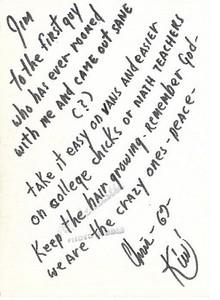 Jim
to the first guy
who has ever roomed
with me and came out sane
(?)
take it easy on vans and easier
on college chicks or math teachers
Keep the hair growing - remember God -
we are the crazy ones - peace -
- 69 -
Kim